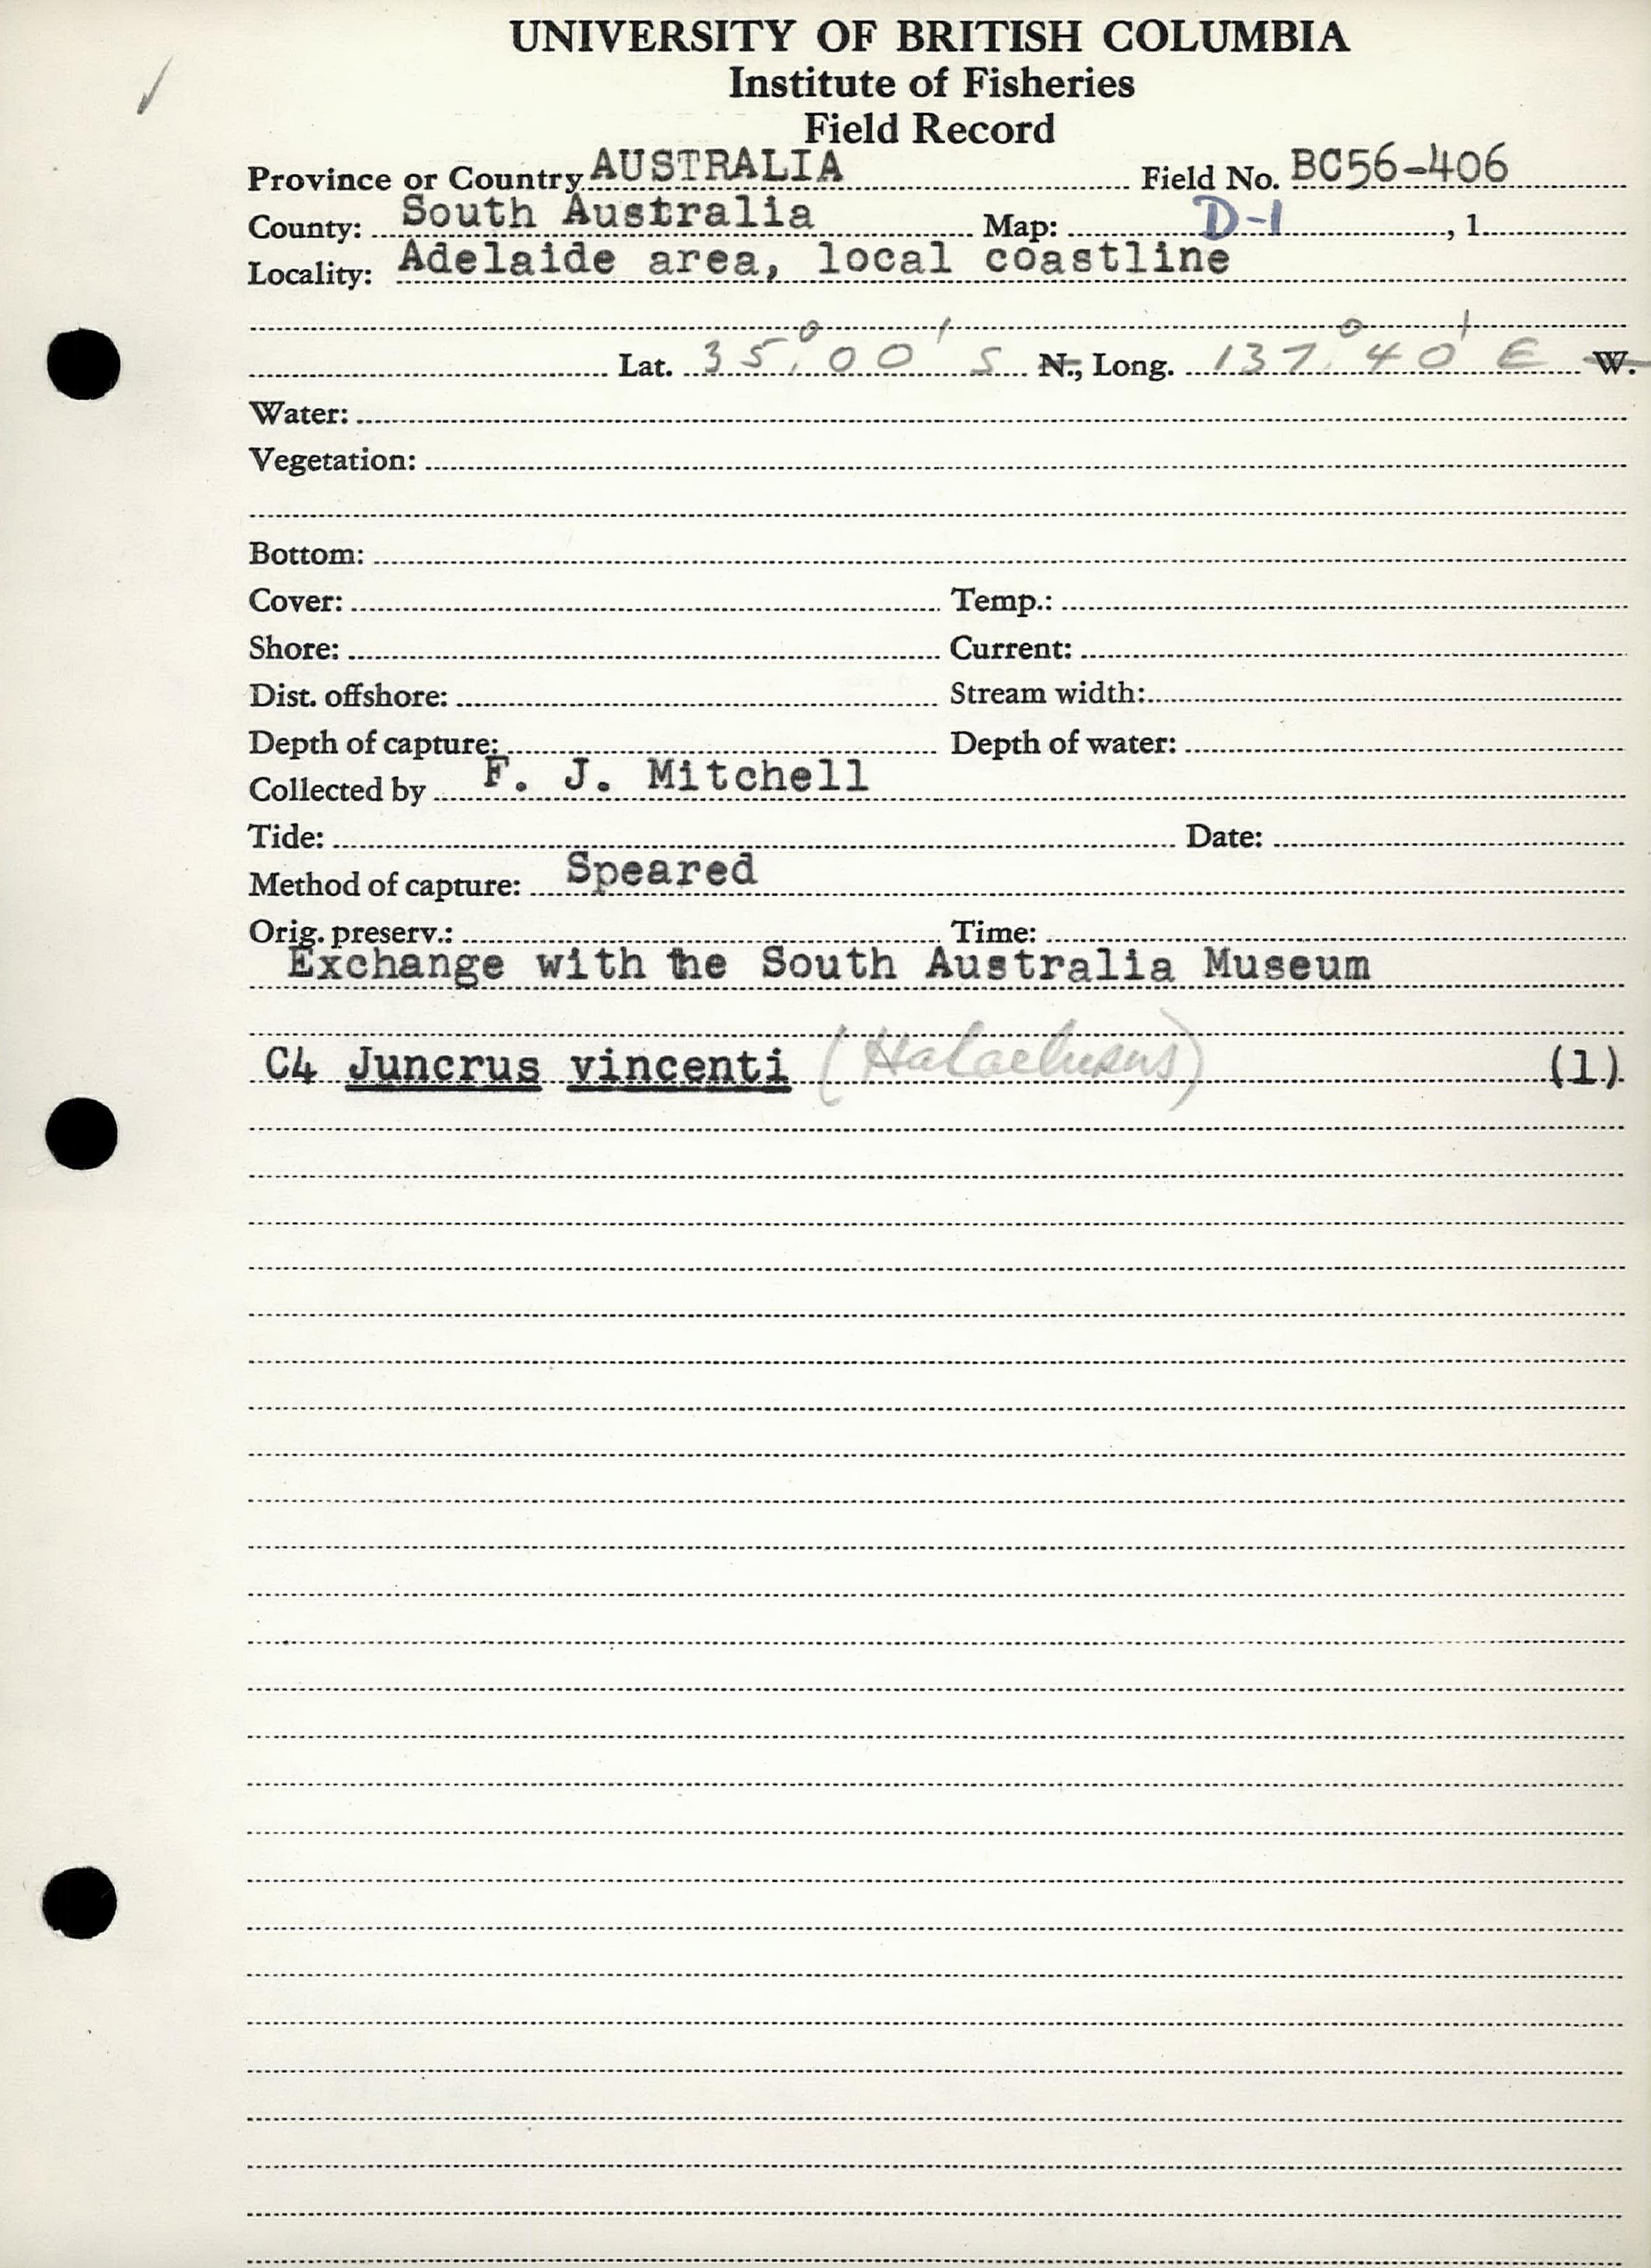 UNIVERSITY OF BRITISH COLUMBIA
Institute of Fisheries
Field Record
Province or Country AUSTRALIA Field No. BC56-406
County: South Australia Map: D-1 , 1.
Locality: Adelaide area, local coastline
Lat. 35°00' S N., Long. 137°40' E W.
Water:
Vegetation:
Bottom:
Cover: Temp.:
Shore: Current:
Dist. offshore: Stream width:
Depth of capture: Depth of water:
Collected by F. J. Mitchell
Tide: Date:
Method of capture: Speared
Orig. preserv.: Time:
Exchange with the South Australia Museum
C4 Juncrus vincenti (Halaelurus) (1)